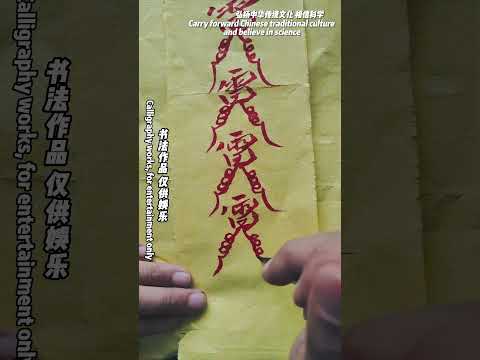 弘扬中华传统文化 相信科学
Carry forward Chinese traditional culture
and believe in science
书法作品 仅供娱乐
Calligraphy works, for entertainment only
书法作品 仅供娱乐
Calligraphy works, for entertainment only